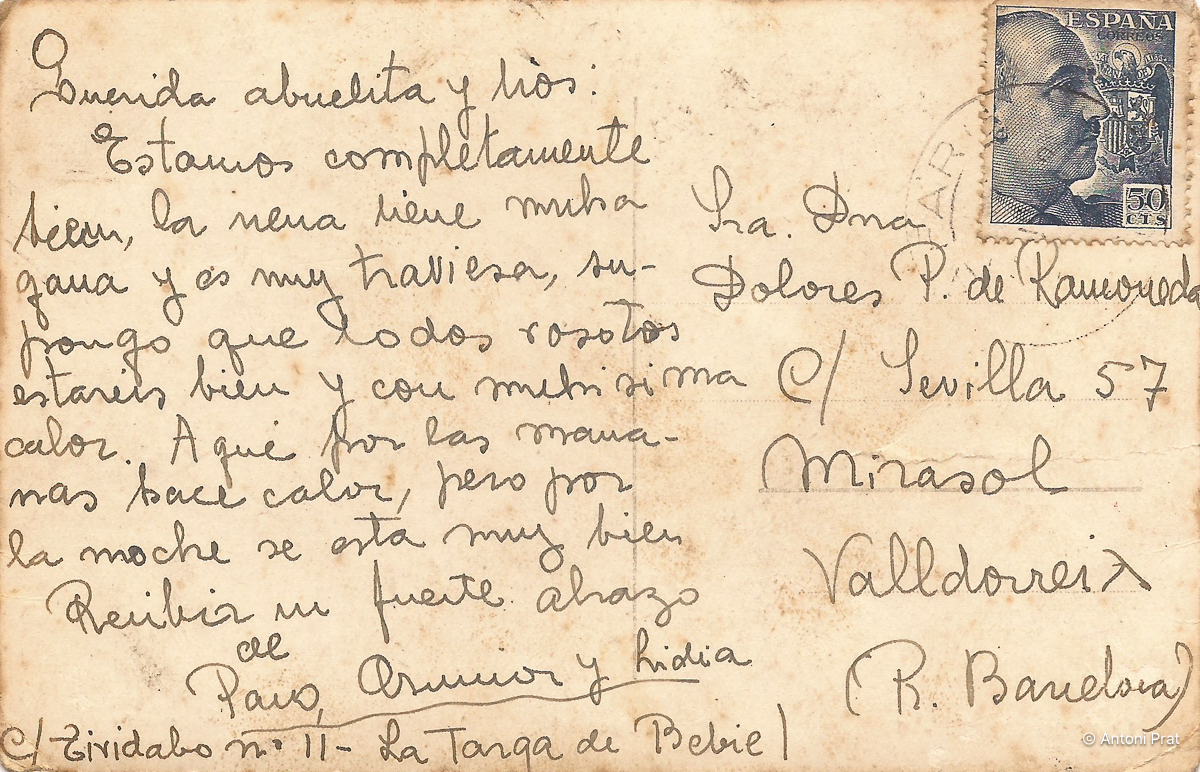 Querida abuelita y tios:
Estamos completamente
bien, la nena tiene mucha
gana y es muy traviesa, su-
pongo que todos vosotros
estareis bien y con muchisima
calor. Aqui por las maña-
nas hace calor, pero por
la noche se esta muy bien
Recibir un fuerte abrazo
de
Paco, y Lidia
C/ Tividabo nº 11 - La Targa de Bebie
ESPAÑA
CORREOS
50
CTS
Sra. Dna
Dolores P. de Ramoneda
C/ Sevilla 57
Mirasol
Valldorreix
(P. Barcelona)
© Antoni Prat